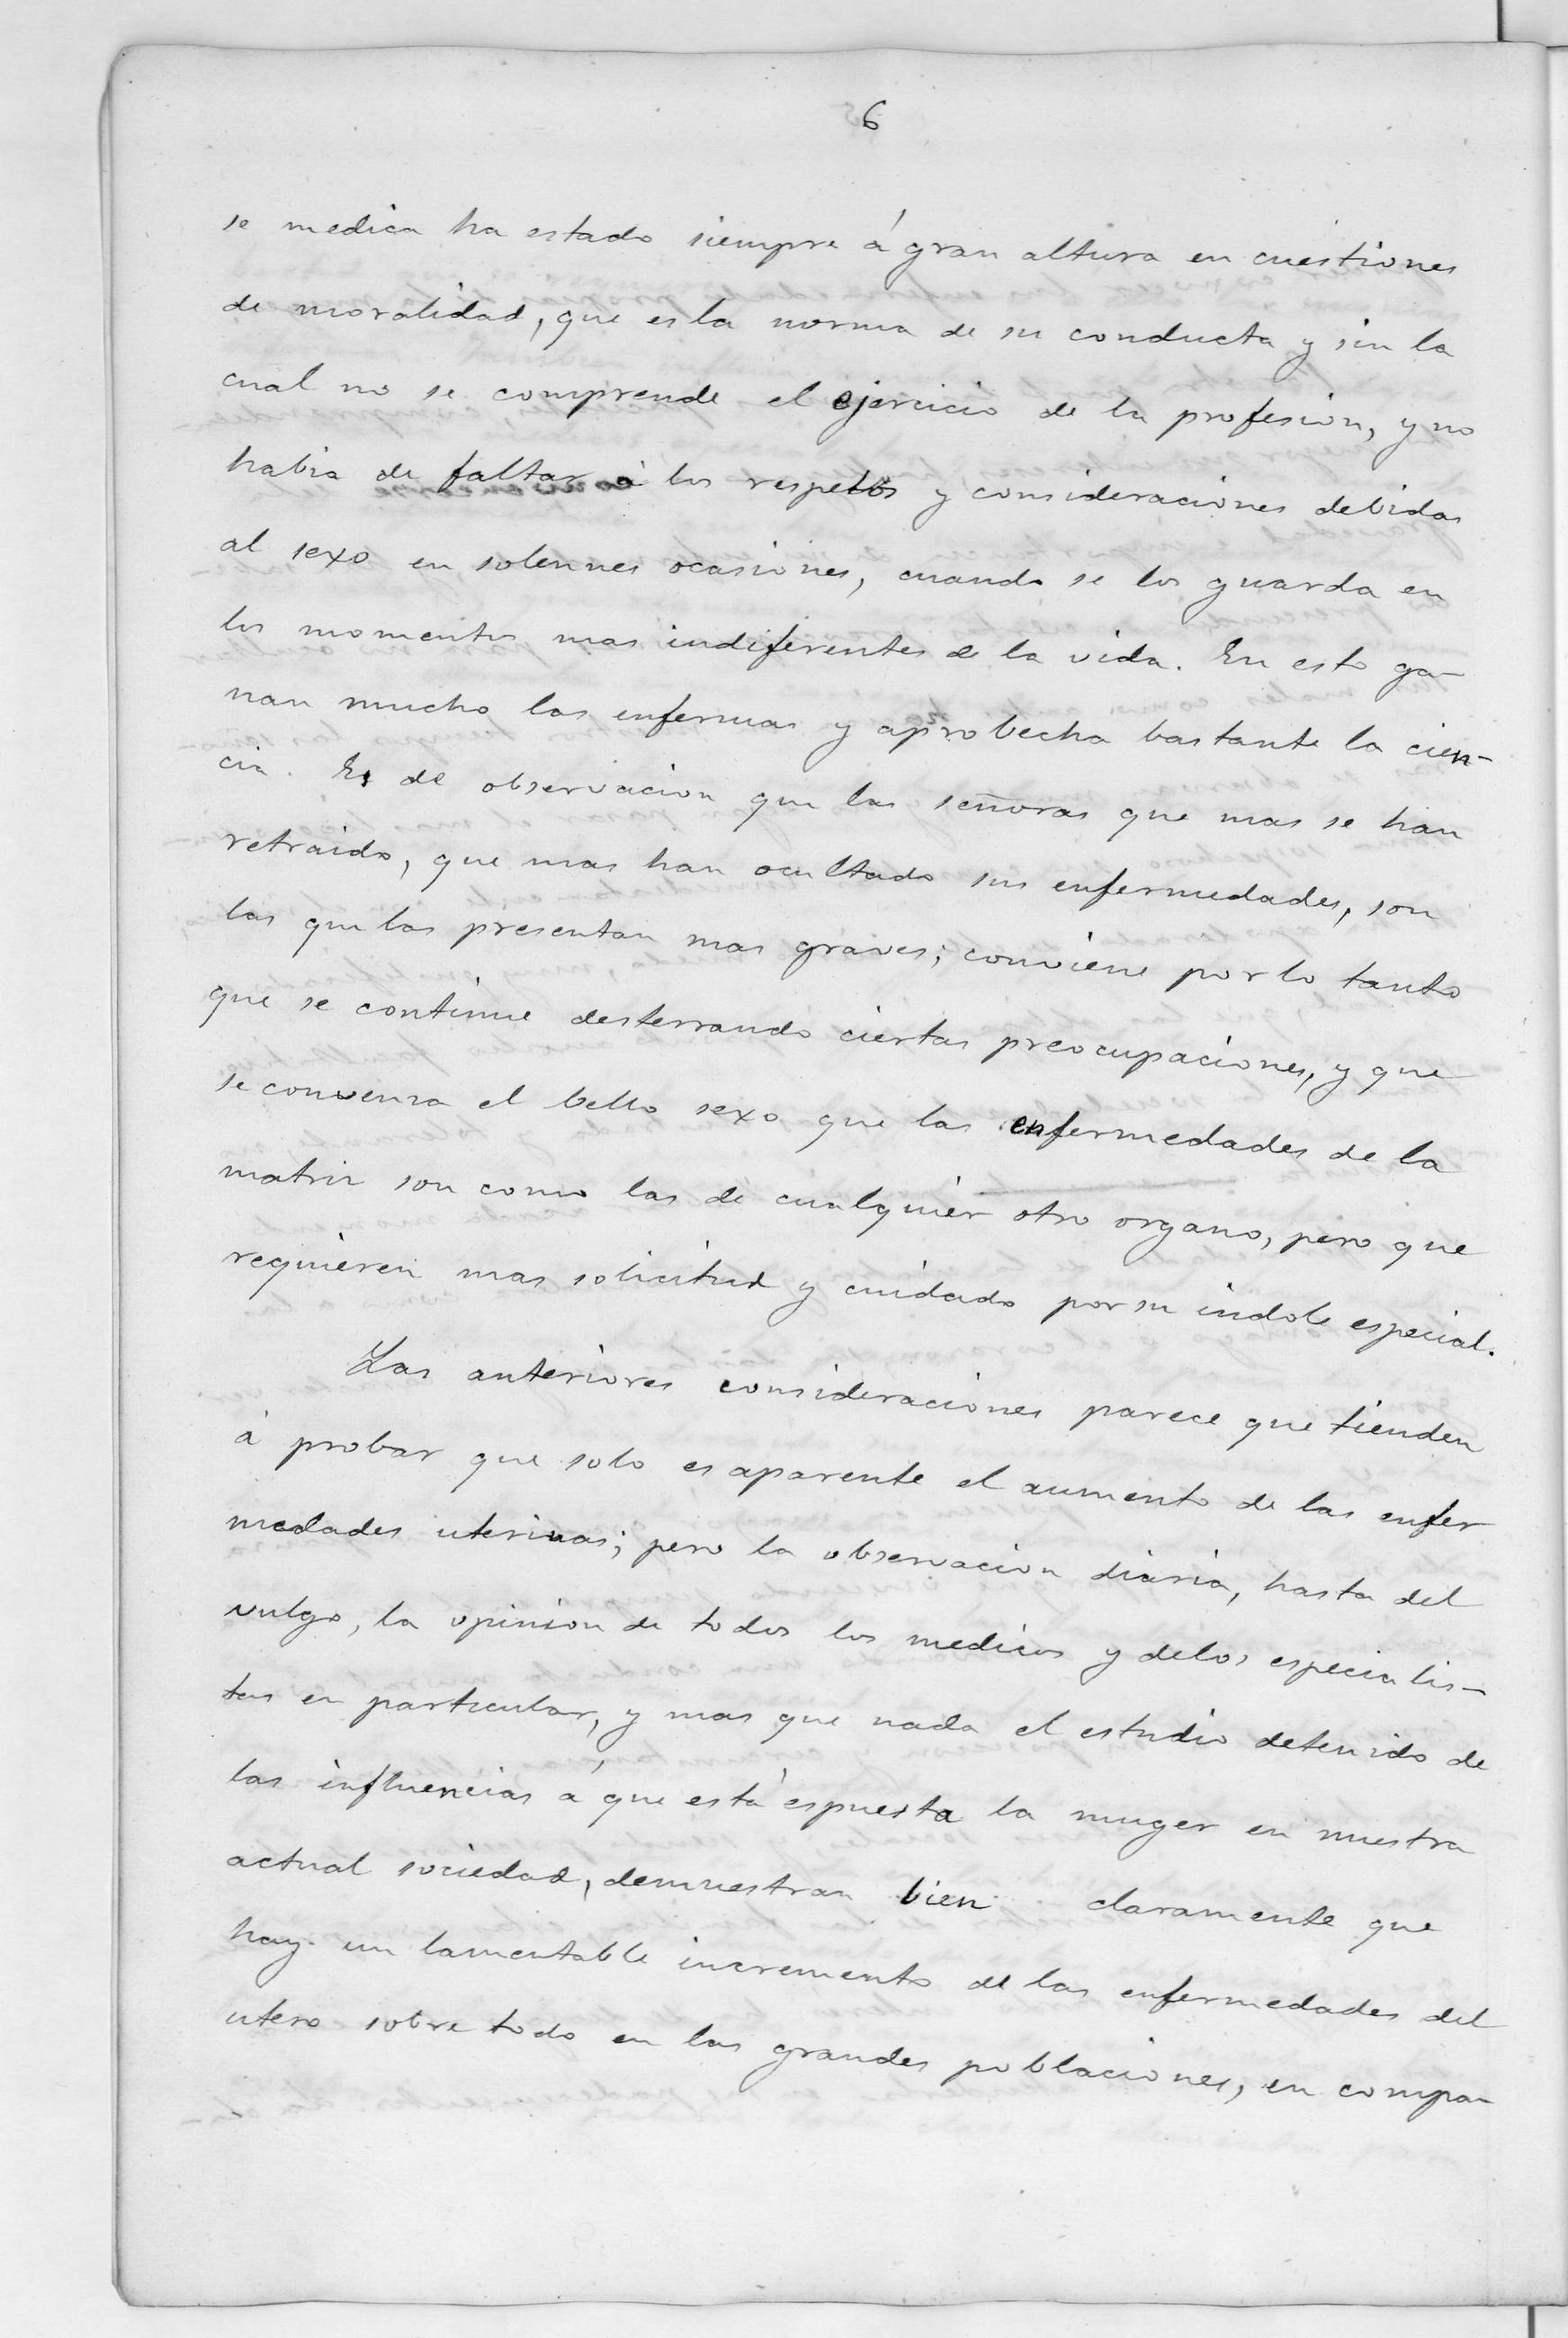 6
se medica ha estado siempre á gran altura en cuestiones
de moralidad, que es la norma de su conducta y sin la
cual no se comprende el ejercicio de la profesion, y no
habia de faltar à los respetos y consideraciones debidas
al sexo en solennes ocasiones, cuando se los guarda en
los momentos mas indiferentes de la vida. En esto ga-
nan mucho las enfermas y aprobecha bastante la cien-
cia. Es de observacion que las señoras que mas se han
retraido, que mas han ocultado sus enfermedades, son
las que las presentan mas graves; conviene por lo tanto
que se continue desterrando ciertas preocupaciones, y que
se convenza el bello sexo que las enfermedades de la
matriz son como las de cualquier otro organo, pero que
requieren mas solicitud y cuidado por su indole especial.
Las anteriores consideraciones parece que tienden
à probar que solo es aparente el aumento de las enfer
medades uterinas; pero la observacion diaria, hasta del
vulgo, la opinion de todos los medicos y de los especialis-
tas en particular, y mas que nada el estudio detenido de
las influencias á que está espuesta la muger en nuestra
actual sociedad, demuestran bien claramente que
hay un lamentable incremento de las enfermedades del
utero sobre todo en las grandes poblaciones, en compa-